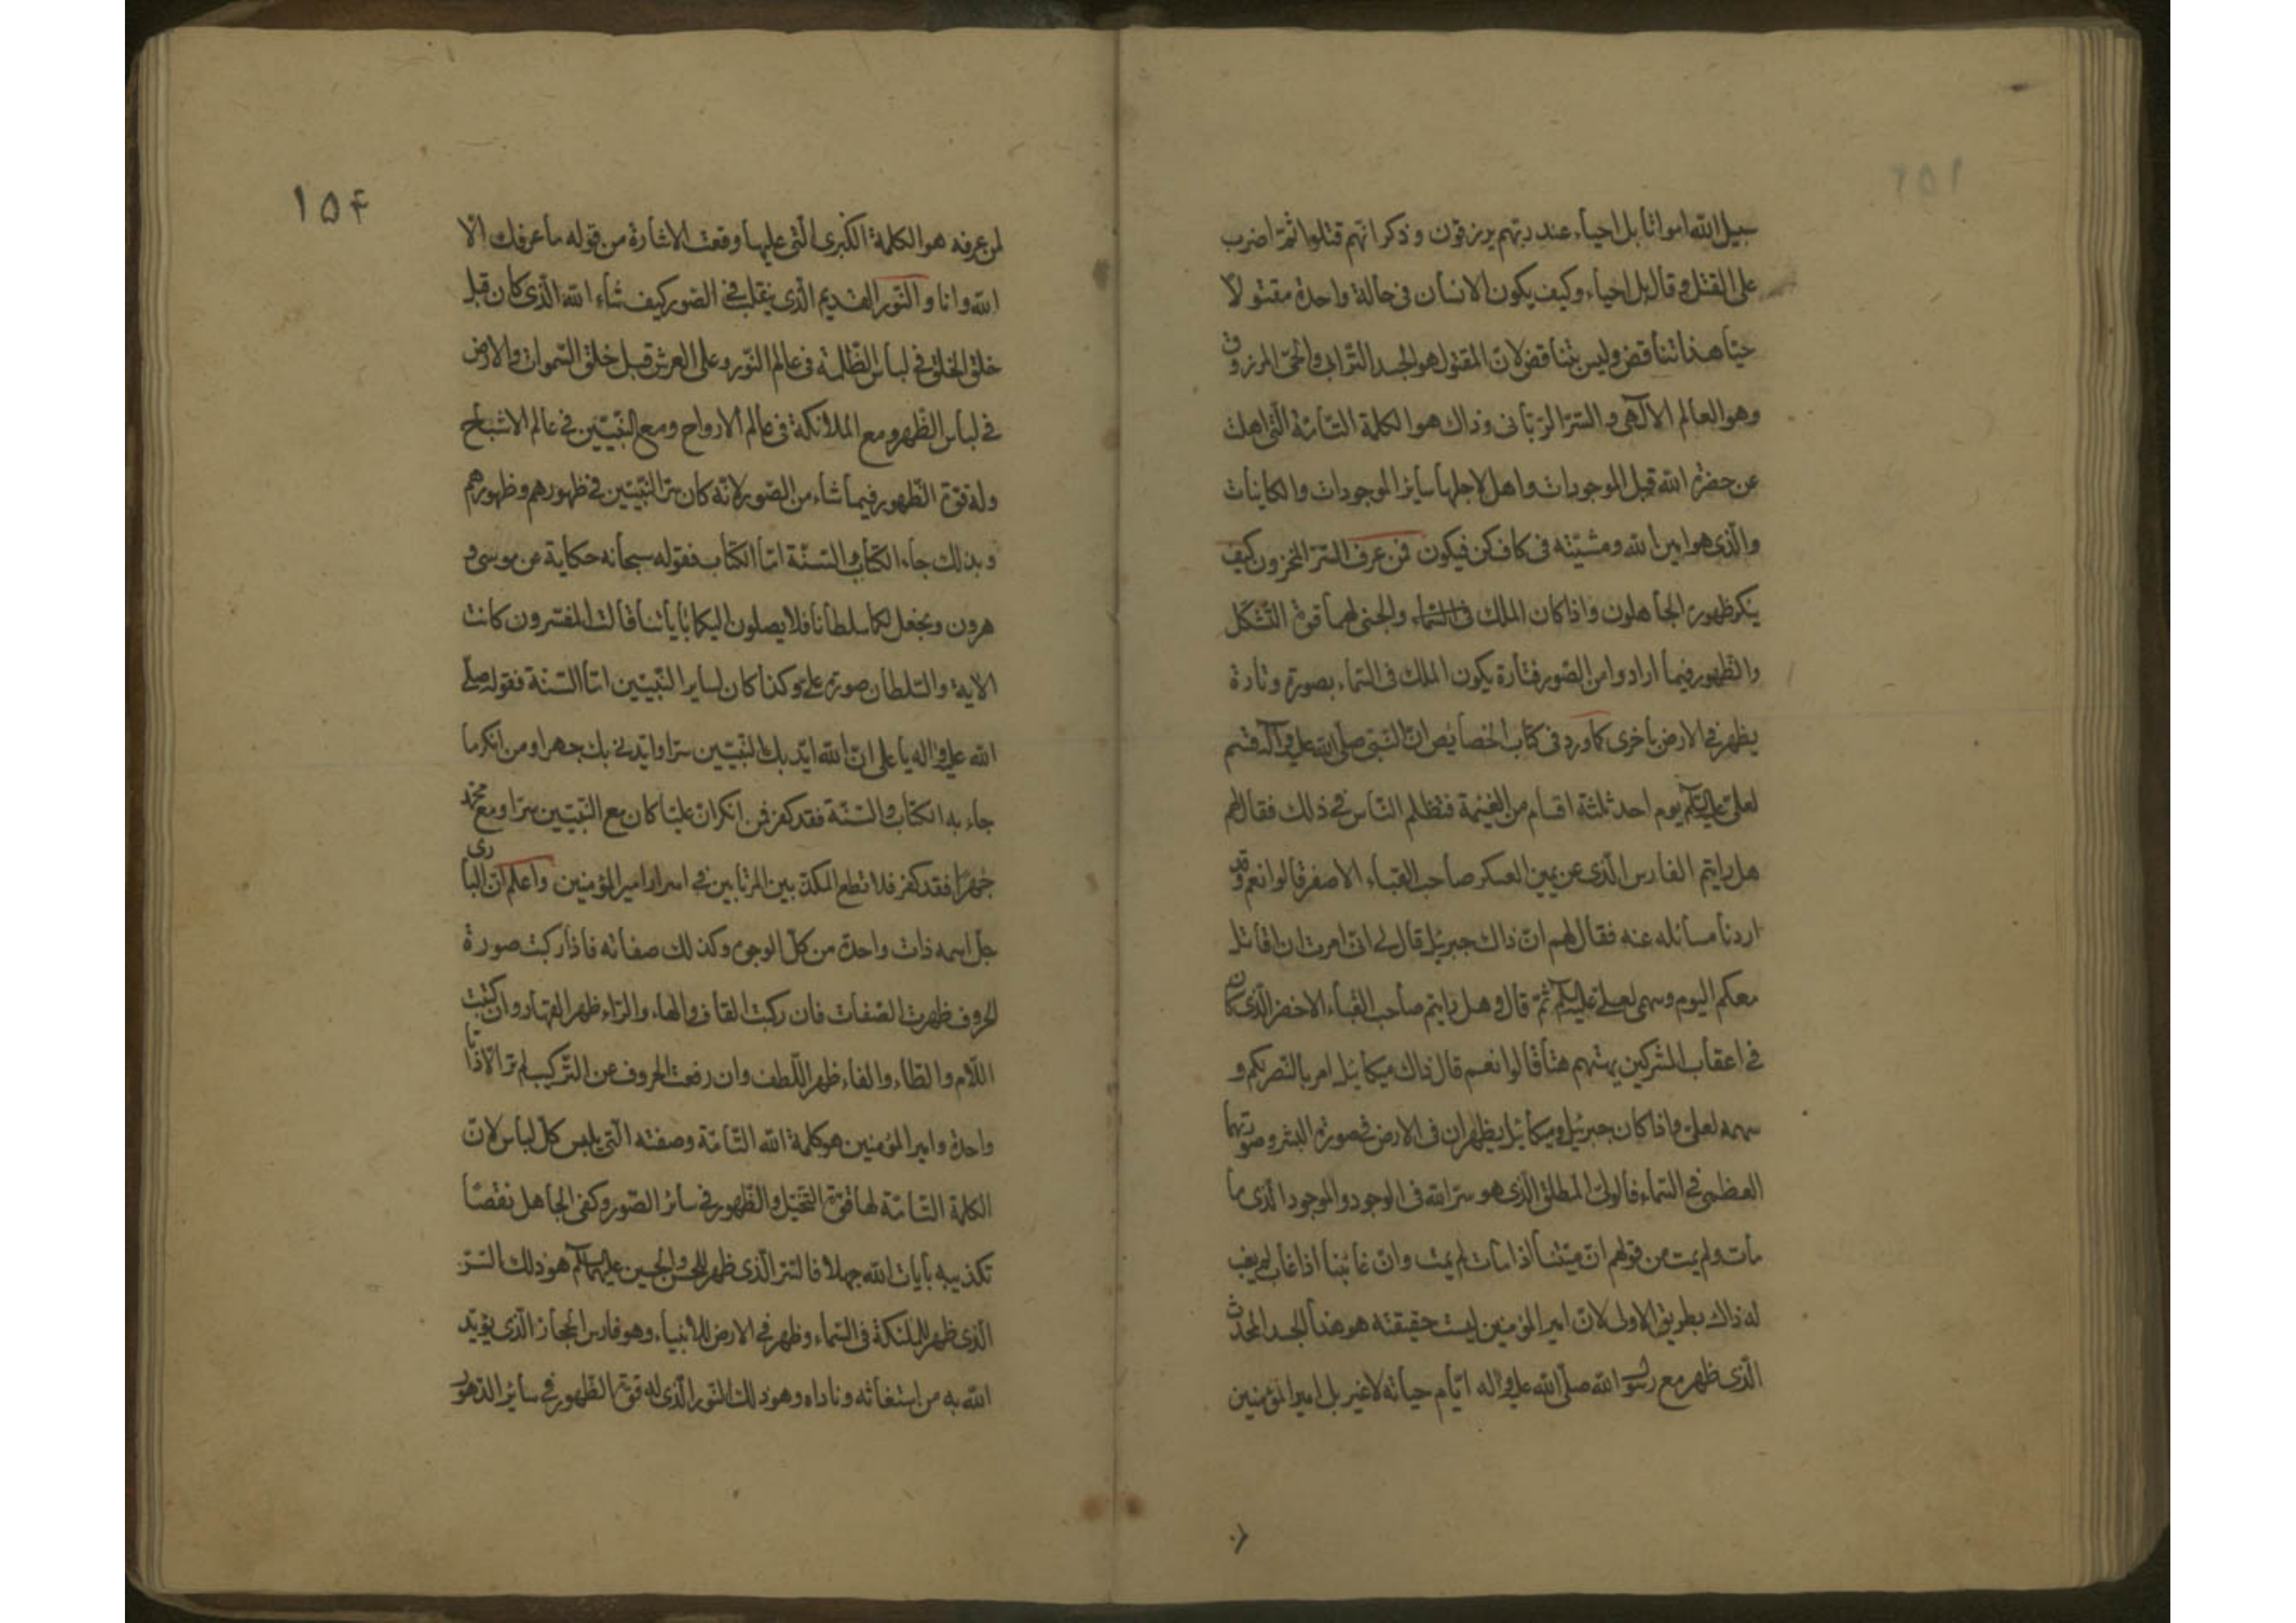 سبيل الله امواتا بل احياء عند ربهم يرزقون وذكر انهم قتلوا ثم اضرب
على القتل وقال بل احياء وكيف يكون الانسان فى حالة واحدة مقتولا
حيّا هذا تناقض وليس بتناقض لان المقتول هو الجسد الترابى والحى المرزوق
وهو العالم الالهى والسرّ الربّانى وذاك هو الكلمة التامّة التى
عن حضرة الله قبل الموجودات و لاجلها ساير الموجودات والكاينات
والّذى هو امين الله ومشيّته فى كاف كن فيكون فمن عرف السرّ المخزون كيف
ينكر ظهوره الجاهلون واذا كان الملك فى السّماء والجنى لهما قوة التّشكّل
والظهور فيما ارادوا من الصّور فتارة يكون الملك فى السّماء بصورة وتارة
يظهر فى الارض باخرى كما ورد فى كتاب الخصايص انّ النّبىّ صلّى الله عليه وآله قسم
لعلىّ عليه السّلم يوم احد ثلثة اقسام من الغنيمة فتظلم النّاس فى ذلك فقال لهم
هل رايتم الفارس الّذى عن يمين العسكر صاحب القباء الاصفر قالوا نعم وقد
اردنا مسائله عنه فقال لهم انّ ذاك جبرئيل قال لى انى امرت ان اقاتل
معكم اليوم وسهمى لعلى عليه السّلم ثمّ قال وهل رايتم صاحب القباء الاخضر الّذى كان
فى اعقاب المشركين قالوا نعم قال ذاك ميكائيل امر بالنّصر لكم و
سهمه لعلى واذا كان جبرئيل وميكائيل يظهران فى الارض فى صورة البشر وصورتهما
العظمى فى السّماء فالولىّ المطلق الّذى هو سرّ الله فى الوجود والموجود الّذى ما
مات ولم يمت من قولهم انّ ميّتنا اذا مات لم يمت وانّ غائبنا اذا غاب لم يغب
له ذاك بطريق الاولى لانّ امير المؤمنين ليست حقيقته هو هذا الجسد المحدث
الّذى ظهر مع رسول الله صلّى الله عليه واله ايّام حياته لا غير بل امير المؤمنين
١٥۴
لمن عرفه هو الكلمة الكبرى الّتى عليها وقعت الاشارة من قوله ما عرفك الّا
الله وانا والنّور القديم الّذى ينقلب فى الصّور كيف شاء الله الّذى كان قبل
خلق الخلق فى لباس الظّلمة فى عالم النّور وعلى العرش قبل خلق السّموات والارض
فى لباس الظّهر ومع الملائكة فى عالم الارواح ومع النّبيّين فى عالم الاشباح
وله قوة الظّهور فيما شاء من الصّور لانّه كان سرّ النّبيّين فى ظهورهم وظهورهم
وبذلك جاء الكتاب والسّنّة امّا الكتاب فقوله سبحانه حكاية عن موسى و
هرون ونجعل لكما سلطانا فلا يصلون اليكما باياتنا قالت المفسرون كانت
الاية والسّلطان صورة على وكذا كان لساير النّبيّين امّا السّنة فقوله صلّى
الله عليه واله يا على انّ الله ايّد بك النّبيّين سرّا وايّدنى بك جهرا ومن انكر ما
جاء به الكتاب والسّنّة فقد كفر فمن انكر انّ عليّا كان مع النّبيّين سرّا ومع محمّد
جهرًا فقد كفر فلا تطع بين المرتابين فى اسرار امير المؤمنين واعلم انّ البارى
جل اسمه ذات واحدة من كلّ الوجوه وكذلك صفاته فاذا ركبت صورة
الحروف ظهرت الصّفات فان ركبت القاف والهاء والرّاء ظهر القهار وان ركبت
اللّام والطّاء والفاء ظهر اللّطف وان رفعت الحروف عن التّركيب لم تر الّا ذاتا
واحدة وامير المؤمنين هو كلمة الله التّامّة وصفته الّتى يلبس كلّ لباس لانّ
الكلمة التّامّة لها قوّة التّخيّل والظّهور فى سائر الصّور وكفى الجاهل نقصًا
تكذيبه بايات الله جهلا فالسّر الّذى ظهر للحسن والحسين عليهما السّلم هو ذلك السّرّ
الّذى ظهر للملئكة فى السّماء وظهر فى الارض للانبياء وهو فارس الحجاز الّذى يؤيّد
الله به من استغاثه وناداه وهو ذلك النّور الّذى له قوّة الظّهور فى سائر الدّهور